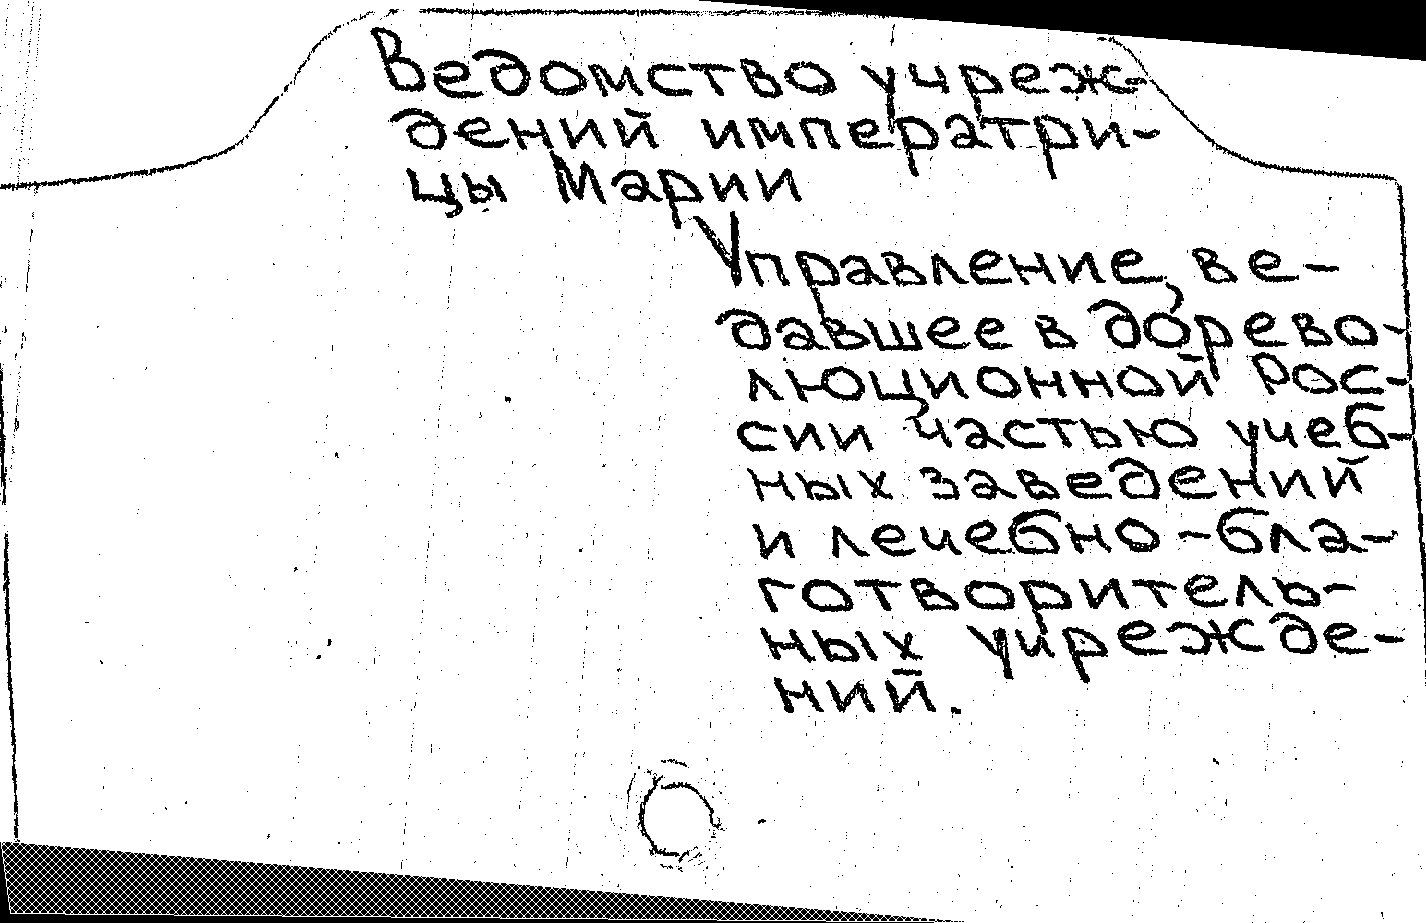 Ведомство учреж-
дений императри-
цы Марии
Управление, ве-
давшее в дорево-
люционной Рос-
сии частью учеб-
ных заведений
и лечебно-бла-
готворитель-
ных учрежде-
ний.